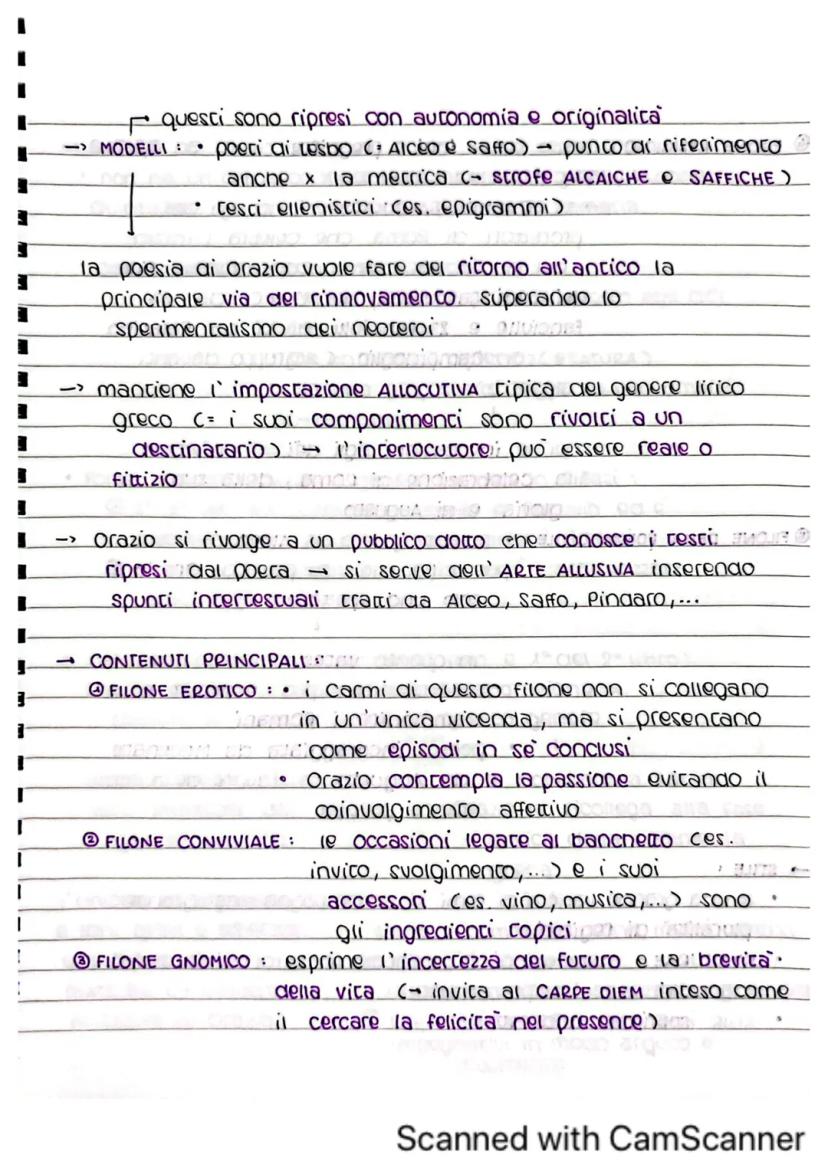 questi sono ripresi con autonomia e originalità
-> MODELLI : • poeti di Lesbo (: Alceo e Saffo) → punto di riferimento
anche x la metrica (→ strofe ALCAICHE e SAFFICHE)
• testi ellenistici (es. epigrammi)
la poesia di Orazio vuole fare del ritorno all'antico la
principale via del rinnovamento superando lo
sperimentalismo dei neoteroi
-> mantiene l'impostazione ALLOCUTIVA tipica del genere lirico
greco (= i suoi componimenti sono rivolti a un
destinatario) → l'interlocutore può essere reale o
fittizio
-> Orazio si rivolge a un pubblico dotto che conosce i testi
ripresi dal poeta → si serve dell'ARTE ALLUSIVA inserendo
spunti intertestuali tratti da Alceo, Saffo, Pindaro,...
→ CONTENUTI PRINCIPALI :
① FILONE EROTICO : • i carmi di questo filone non si collegano
in un'unica vicenda, ma si presentano
come episodi in sé conclusi
• Orazio contempla la passione evitando il
coinvolgimento affettivo
② FILONE CONVIVIALE : le occasioni legate al banchetto (es.
invito, svolgimento,...) e i suoi
accessori (es. vino, musica,...) sono
gli ingredienti topici
③ FILONE GNOMICO : esprime l'incertezza del futuro e la brevità
della vita (→ invita al CARPE DIEM inteso come
il cercare la felicità nel presente)
Scanned with CamScanner